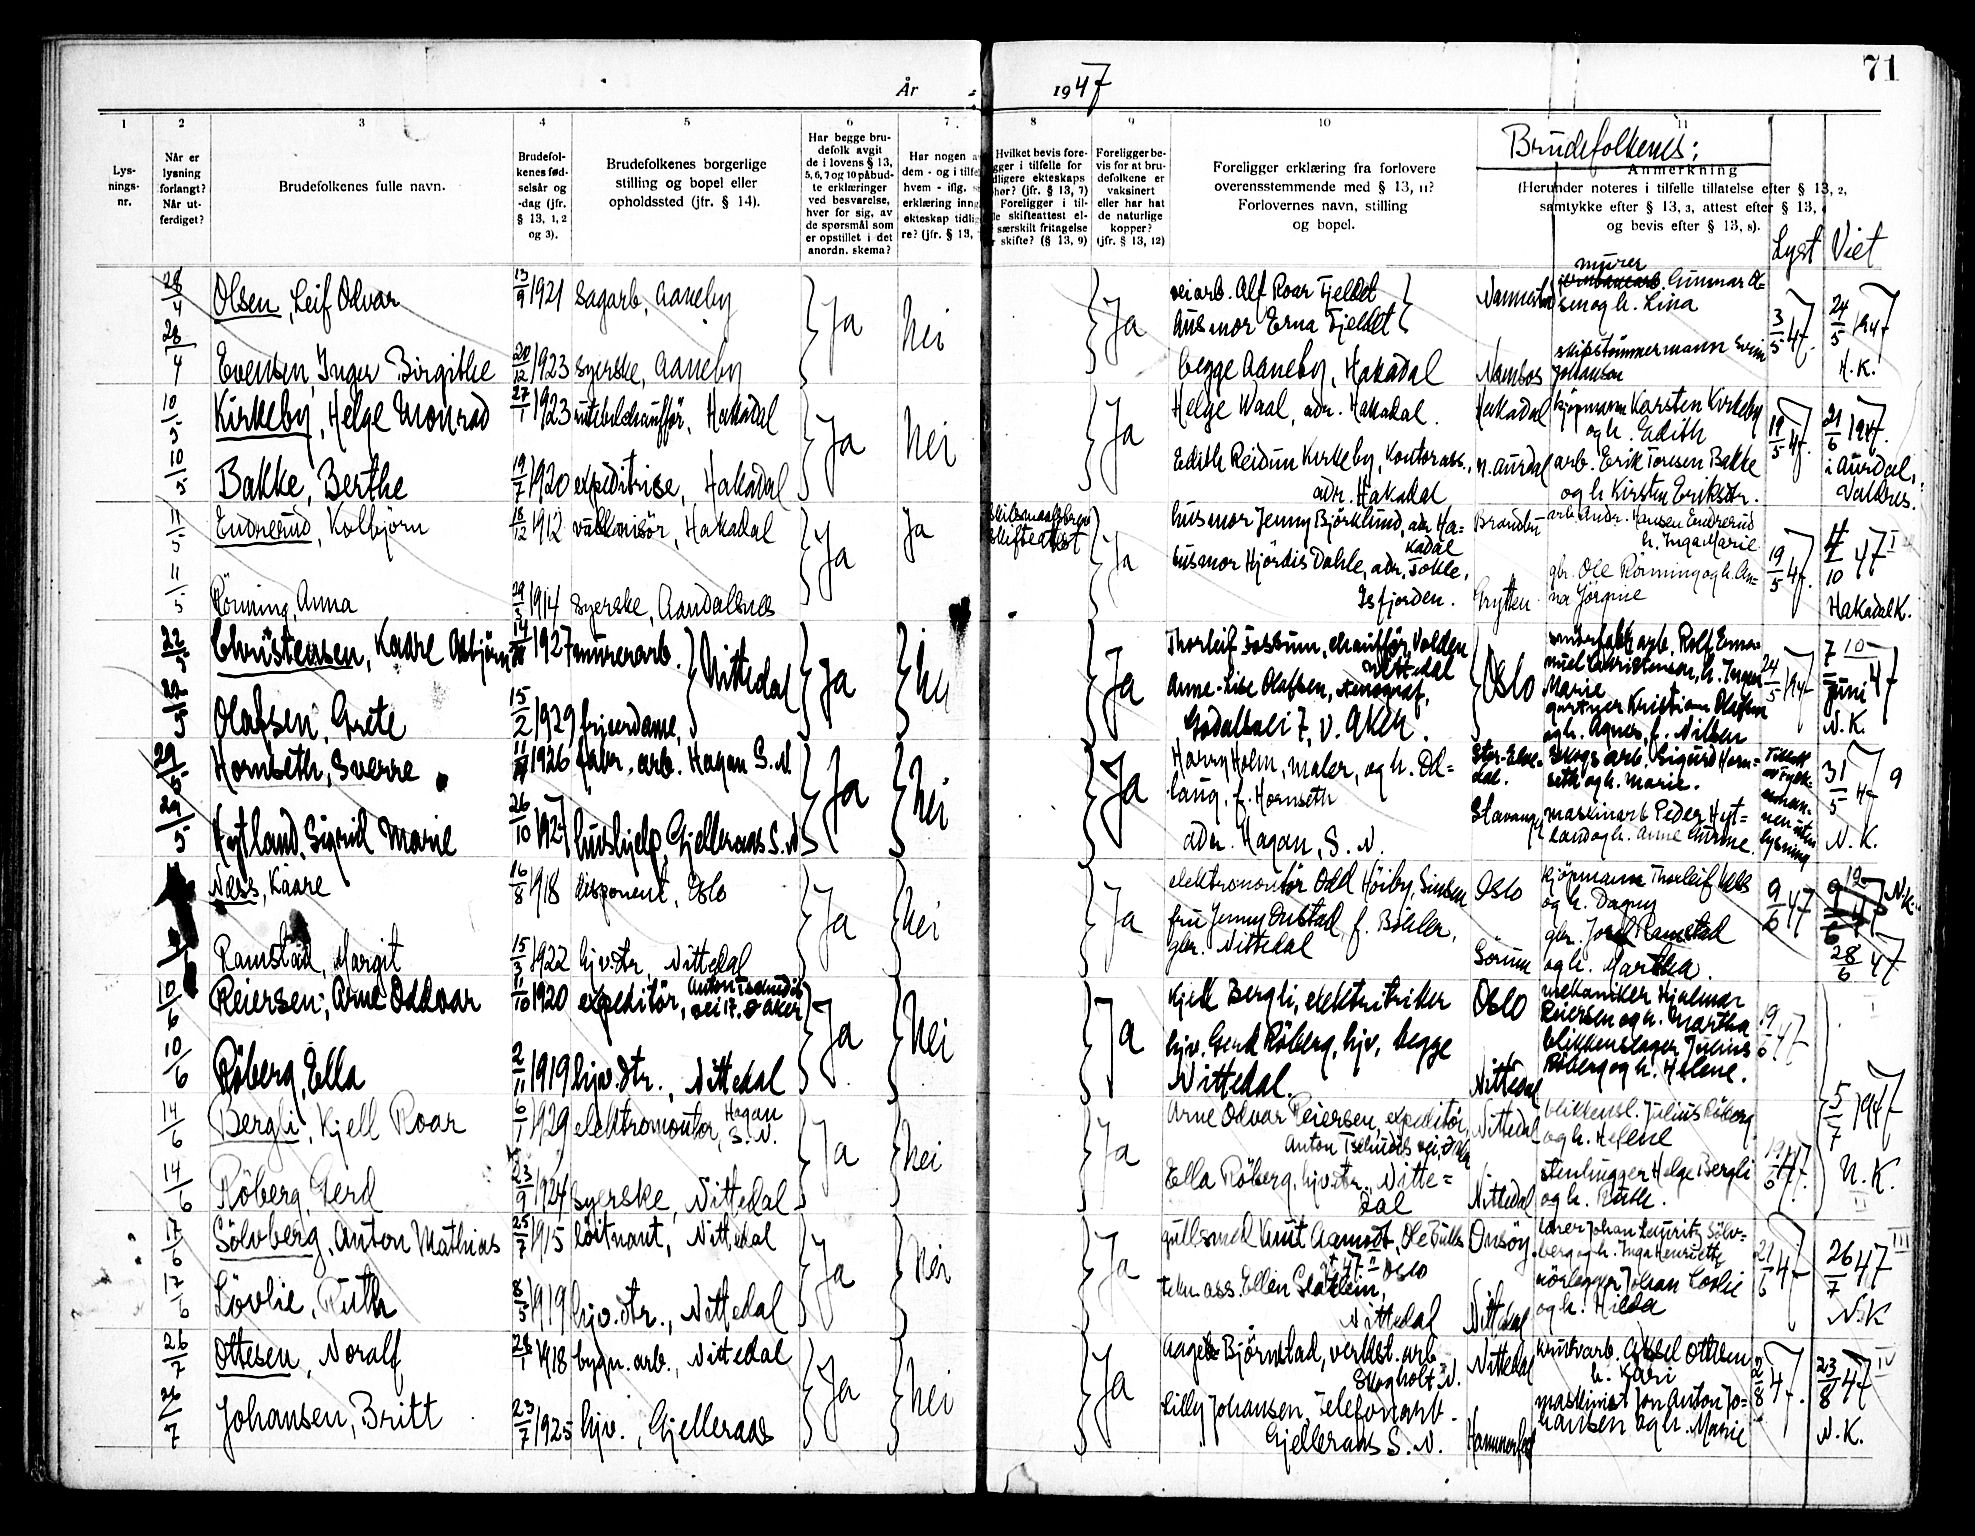 71
År 1947
1 2 3 4 5 6 7 8 9 10 11
Brudefolkenes:
Lys-
nings-
nr.
Når er
lysning
forlangt?
Når ut-
ferdiget?
Brudefolkenes fulle navn.
Brudefol-
kenes fød-
selsår og
-dag (jfr.
§ 13, 1, 2
og 3).
Brudefolkenes borgerlige
stilling og bopel eller
opholdssted (jfr. § 14).
Har begge bru-
defolk avgit
de i lovens § 13,
5, 6, 7 og 10 påbud-
te erklæringer
ved besvarelse,
hver for sig, av
de spørsmål som
er opstillet i det
anordn. skema?
Har nogen
dem - og i tilfe
hvem - iflg.
erklæring inng
ekteskap tidlig
re? (jfr. § 13,
Hvilket bevis fore-
gger i tilfelle for
dligere ekteskaps
hør? (jfr. § 13, 7)
Foreligger i til-
le skifteattest el-
særskilt fritagelse
skifte? (§ 13, 9)
Foreligger be-
vis for at bru-
defolkene er
vaksinert
eller har hat
de naturlige
kopper?
(jfr. § 13, 12)
Foreligger erklæring fra forlovere
overensstemmende med § 13, 11?
Forlovernes navn, stilling
og bopel.
Anmerkning
(Herunder noteres i tilfelle tillatelse efter § 13, 2,
samtykke efter § 13, 3, attest efter § 13,
og bevis efter § 13, 8).
Lyst Viet
28/4 Olsen, Leif Odvar 13/9 1921 sagarb, Aaneby Ja Nei Ja veiarb. Alf Roar Fjeldet murer Gunnar Ol-
sen og h. Lina 3/5 47. 24/5 1947
husmor Erna Fjeldet
28/4 Evensen, Inger Birgithe 20/12 1923 syerske, Aaneby begge Aaneby, Hakadal Namsos skipstømmermann
Johansen H.K.
10/5 Kirkeby, Helge Monrad 27/1 1923 rutebilchauffør, Hakadal Ja Nei Ja Helge Waal, adr. Hakadal. Hakadal kjøpmann Karsten Kirkeby
og h. Edith 19/5 47. 21/6 1947.
10/5 Bakke, Berthe 19/7 1920 expeditrise, Hakadal Edith Reidun Kirkeby, Kontorass.,
adr. Hakadal N. Aurdal arb. Erik Toresen Bakke
og h. Kirsten Eriksdtr. i Aurdal,
Valdres.
11/5 Endrerud, Kolbjörn 18/12 1912 Hakadal Ja Ja skifteattest Ja husmor Jenny Björklund, adr Ha-
kadal Brandbu arb. Andr. Hansen Endrerud
h. Inga Marie 19/5 47. 4/10 47 I
11/5 Rönning, Anna 29/5 1914 syerske, Aandalsnes husmor Hjördis Dahle, adr. Tokle,
Isfjorden. Grytten gbr. Ole Rönning og h. An-
na Jörgine Hakadal K.
22/5 Christensen, Kaare Asbjörn 1927 murerarb. Nittedal Ja Nei Ja Thorleif Fossum, chauffør, Volden
Nittedal Oslo arb. Rolf Ema-
nuel Christensen, h. Inger
Marie 24/5 1947 7 juni 47
22/5 Olafsen, Grete 15/2 1929 friserdame, Anne-Lise Olafsen, stenograf,
Godalsvei 7, V. Aker. gartner Kristian Olafsen
og h. Agnes, f. Nilsen N.K.
29/5 Hornseth, Sverre 1926 fabr. arb. Hagan S. N. Ja Nei Ja Harry Holm, maler, og h. Od-
laug, f. Hornseth Stor-Elve-
dal. skogsarb. Sigurd Horn-
seth og h. Marie. 31/5 47 9
29/5 Hytland, Sigrid Marie 26/10 1927 hushjelp, Gjelleraas S. N. adr. Hagan, S. N. Stavanger maskinarb Peder Hyt-
land og h. Anne Gurine. lysning N. K.
Næss, Kaare 16/8 1918 disponent, Oslo Ja Nei Ja elektromontör Odd Höiby, Sinsen Oslo kjöpmann Thorleif Næss
og h. Dagny 9/6 47 N.K.
Ramstad, Margit 15/3 1922 hjv. dtr., Nittedal fru Jenny Onstad, f. Böhler,
gbr. Nittedal Sörum gbr. Ramstad
og h. Martha. 28/6 47
10/6 Reiersen, Arne Oddvar 11/10 1920 expeditör, Anton Tschudis
vei 17. Aker Ja Nei Ja Kjell Bergli, elektriker Oslo mekaniker Hjalmar
Reiersen og h. Martha 19/6 47
10/6 Röberg, Ella 2/11 1919 hjv. dtr., Nittedal hjv. Gerd Röberg, hjv, begge
Nittedal. Nittedal blikkenslager Julius
Röberg og h. Helene.
14/6 Bergli, Kjell Roar 6/1 1929 elektromontör, Hagan
S. N. Ja Nei Ja Arne Odvar Reiersen, expeditör,
Anton Tschudis vei, Nittedal blikkensl. Julius Röberg
og h. Helene 19/6 47. 5/7 1947
14/6 Röberg, Gerd 23/9 1924 syerske, Nittedal Ella Röberg, hjv. dtr. Nitte-
dal Nittedal stenhugger Helge Bergli
og h. Ruth. N. K.
II
17/6 Sölvberg, Anton Mathias 25/7 1915 löitnant, Nittedal Ja Nei Ja gullsmed Knut Aamodt, Ole Bulls
gt. 47 II Oslo Onsöy lærer Johan Lauritz Sölv-
berg og h. Inga Henriette 21/6 47 26/7 47 III
17/6 Lövlie, Ruth 8/5 1919 hjv. dtr., Nittedal tekn. ass. Ellen
Nittedal Nittedal rörlegger Johan Lövlie
og h. Hilda N.K
26/7 Ottesen, Noralf 28/1 1918 bygn. arb., Nittedal Ja Nei Ja Aage Björnstad, verkst. arb
Skogholt N. Nittedal krutvarb. Aksel Ottesen
h. Kari 2/8 47. 23/8 47 IV
26/7 Johansen, Britt 23/7 1925 hjv., Gjelleraas Lilly Johansen, Telefonarb.
Gjelleraas S. N. Hammerfest maskinist Jon Anton Jo-
hansen og h. Marie N.K.